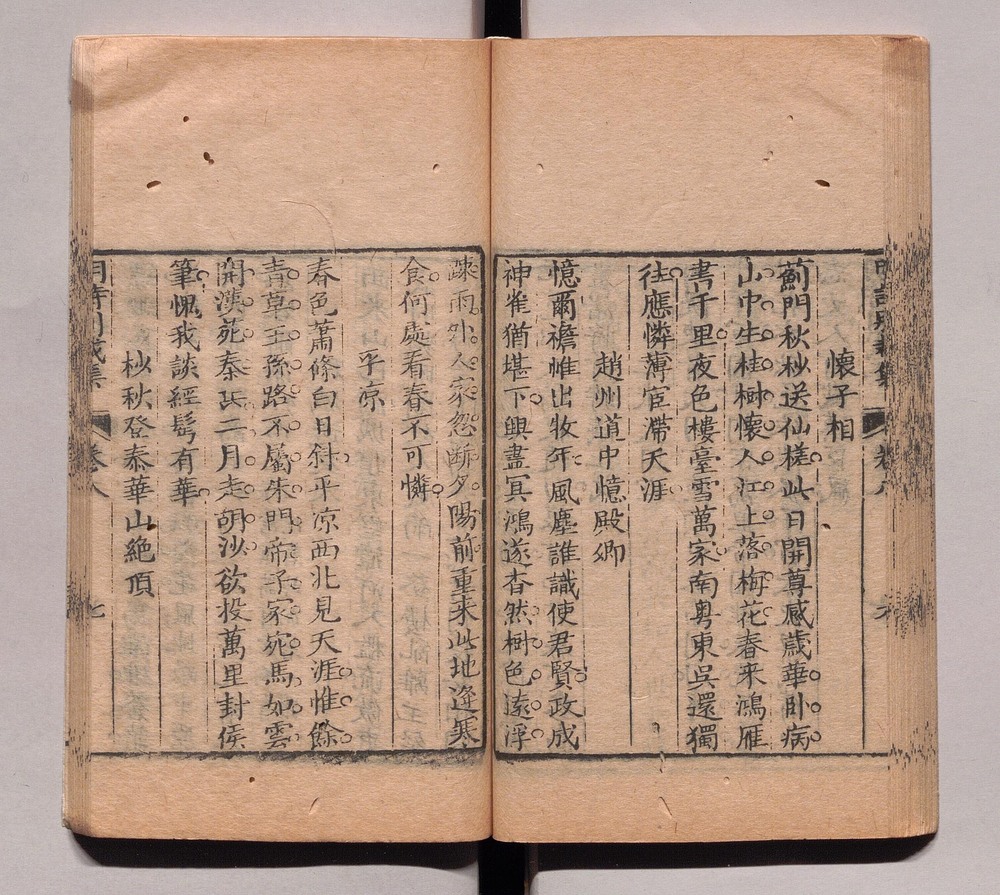 懷子相
薊門秋杪送仙槎此日開尊感歲華卧病
山中生桂樹懷人江上落梅花春来鴻雁
書千里夜色樓臺雪萬家南粤東吳還獨
往應憐薄宦滯天涯
趙州道中憶殿卿
憶爾襜帷出牧年風塵誰識使君賢政成
神雀猶堪下興盡冥鴻遂杳然樹色遠浮
疎雨外人家忽斷夕陽前重来此地逢寒
食何處看春不可憐
平凉
春色蕭條白日斜平凉西北見天涯惟餘
青草王孫路不屬朱門帝子家宛馬如雲
開漢苑秦兵二月走胡沙欲投萬里封侯
筆愧我談經鬂有華
杪秋登泰華山絶頂
卷八
七